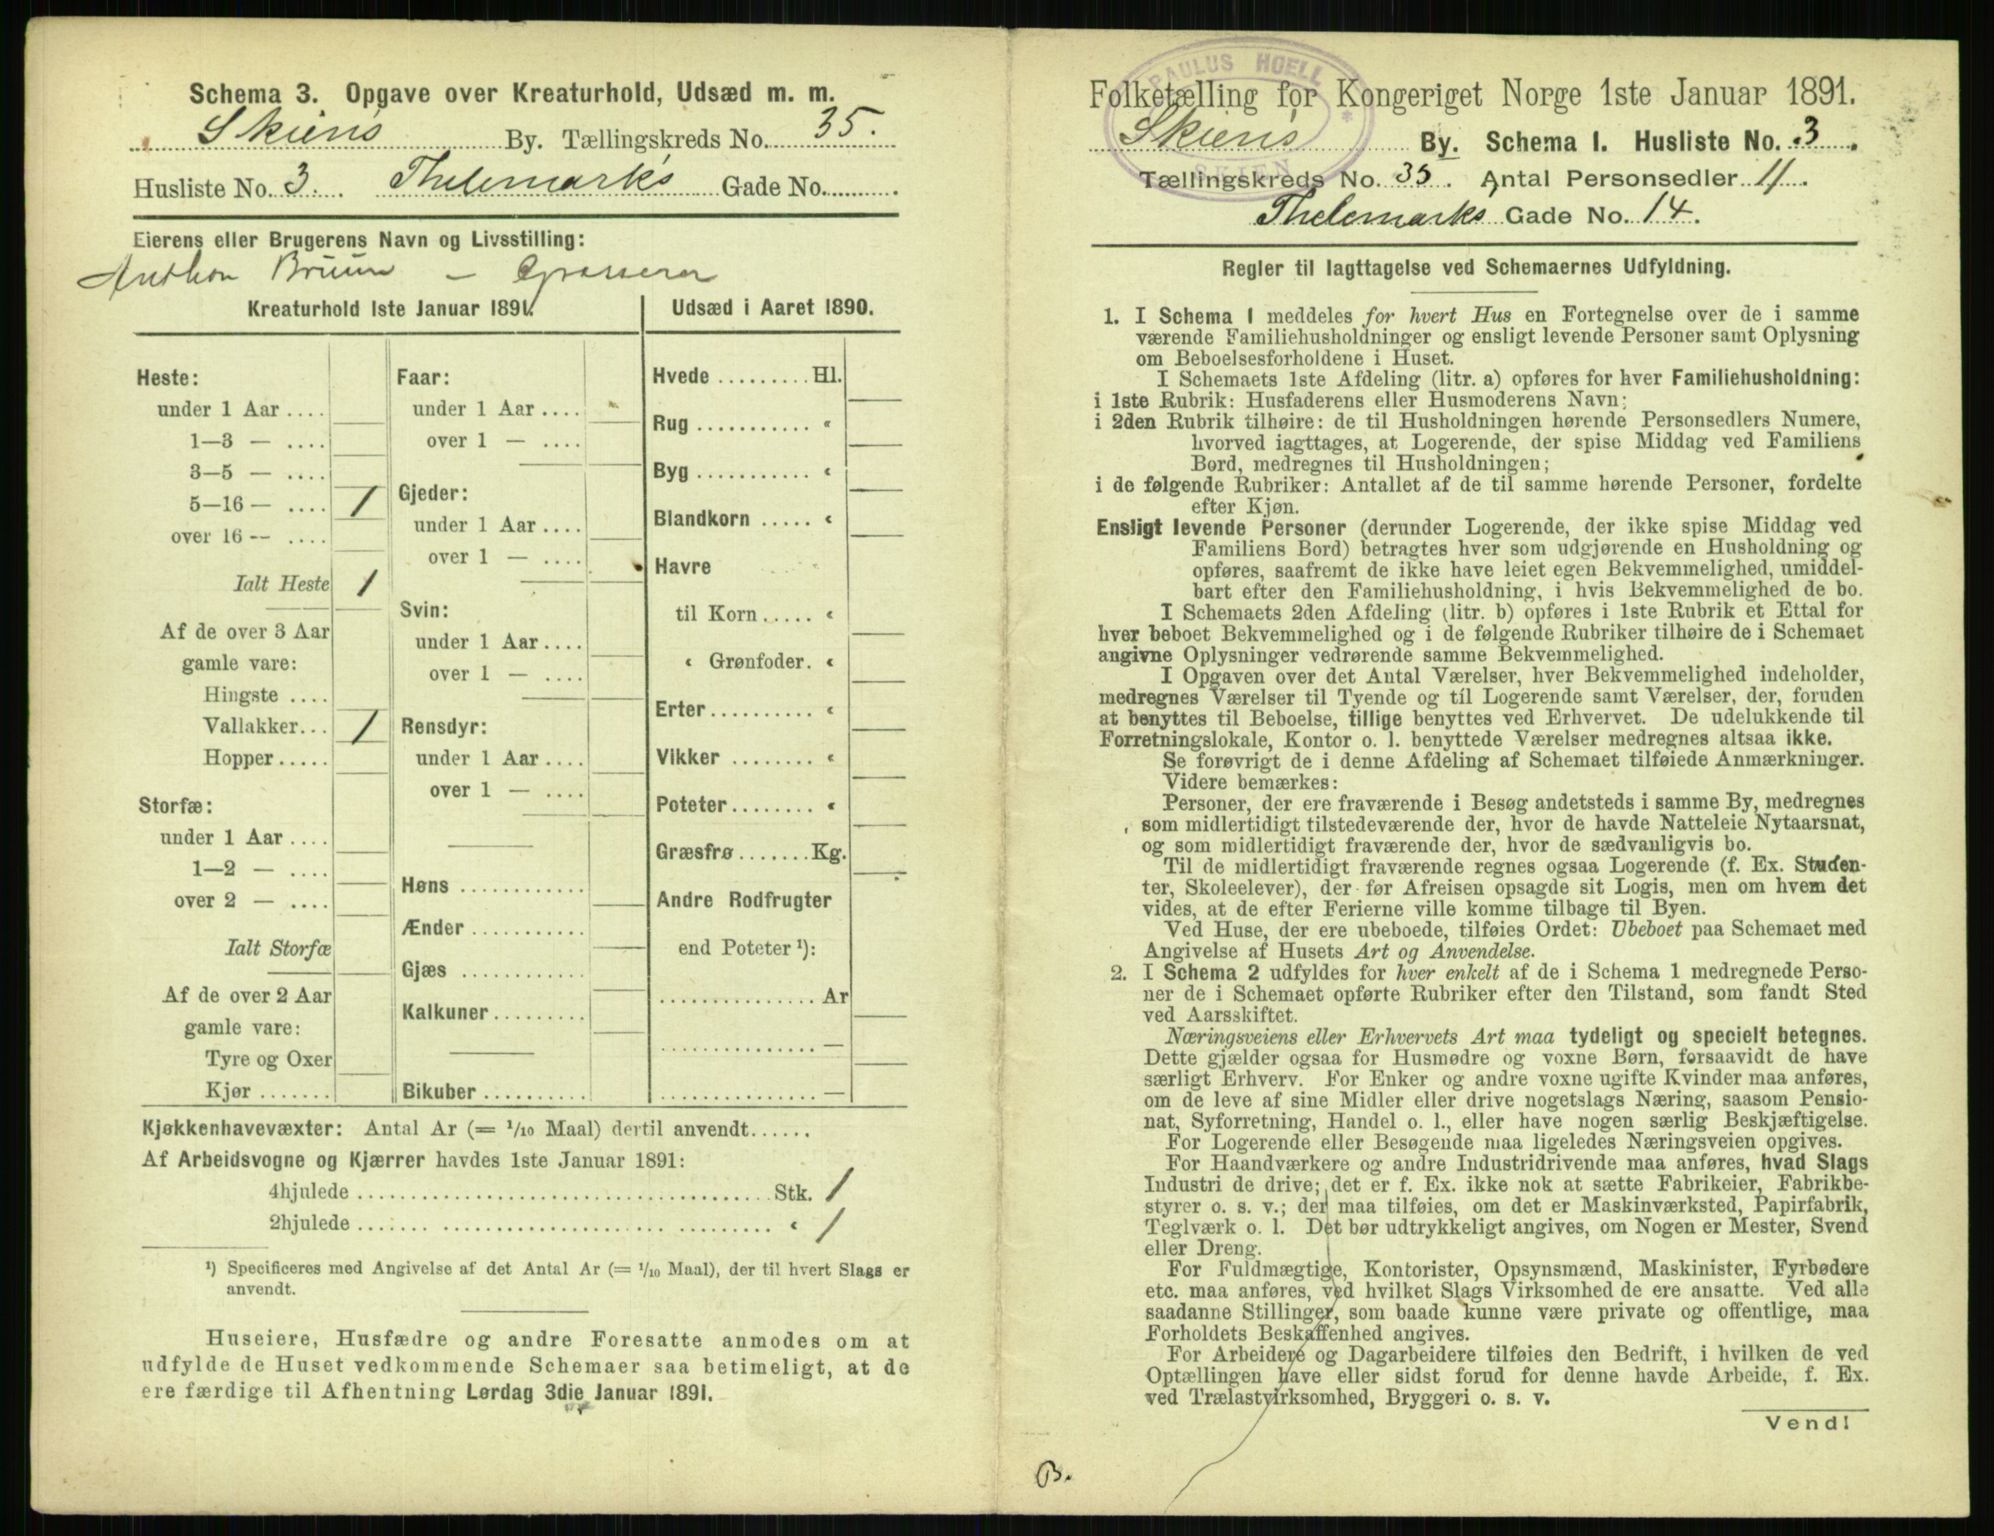 Schema 3. Opgave over Kreaturhold, Udsæd m. m.
Skiens By. Tællingskreds No. 35.
Husliste No. 3. Thelemarks Gade No.
Eierens eller Brugerens Navn og Livsstilling:
Anthon Bruun — Grosserer
Kreaturhold 1ste Januar 1891.
Heste:
under 1 Aar ....
1—3 — ....
3—5 — ....
5—16 — .... 1
over 16 — ....
Ialt Heste 1
Af de over 3 Aar
gamle vare:
Hingste ....
Vallakker... 1
Hopper .....
Storfæ:
under 1 Aar ....
1—2 — ....
over 2 — ....
Ialt Storfæ
Af de over 2 Aar
gamle vare:
Tyre og Oxer
Kjør .......
Faar:
under 1 Aar ....
over 1 — ....
Gjeder:
under 1 Aar ....
over 1 — ....
Svin:
under 1 Aar ....
over 1 — ....
Rensdyr:
under 1 Aar ....
over 1 — ....
Høns ............
Ænder ...........
Gjæs ............
Kalkuner.........
Bikuber ..........
Udsæd i Aaret 1890.
Hvede ......... Hl.
Rug ........... «
Byg ........... «
Blandkorn ..... «
Havre
til Korn ..... «
« Grønfoder. «
Erter .......... «
Vikker ........ «
Poteter ........ «
Græsfrø ....... Kg.
Andre Rodfrugter
end Poteter ¹):
............... Ar
............... —
............... —
Kjøkkenhavevæxter: Antal Ar (= 1/10 Maal) dertil anvendt......
Af Arbeidsvogne og Kjærrer havdes 1ste Januar 1891:
4hjulede ..................................... Stk. 1
2hjulede ..................................... « 1
¹) Specificeres med Angivelse af det Antal Ar (= 1/10 Maal), der til hvert Slags er
anvendt.
Huseiere, Husfædre og andre Foresatte anmodes om at
udfylde de Huset vedkommende Schemaer saa betimeligt, at de
ere færdige til Afhentning Lørdag 3die Januar 1891.
PAULUS HOELL
SKIEN
Folketælling for Kongeriget Norge 1ste Januar 1891.
Skiens By. Schema I. Husliste No. 3.
Tællingskreds No. 35. Antal Personsedler 11.
Thelemarks Gade No. 14.
Regler til Iagttagelse ved Schemaernes Udfyldning.
1. I Schema I meddeles for hvert Hus en Fortegnelse over de i samme
værende Familiehusholdninger og ensligt levende Personer samt Oplysning
om Beboelsesforholdene i Huset.
I Schemaets 1ste Afdeling (litr. a) opføres for hver Familiehusholdning:
i 1ste Rubrik: Husfaderens eller Husmoderens Navn;
i 2den Rubrik tilhøire: de til Husholdningen hørende Personsedlers Numere,
hvorved iagttages, at Logerende, der spise Middag ved Familiens
Bord, medregnes til Husholdningen;
i de følgende Rubriker: Antallet af de til samme hørende Personer, fordelte
efter Kjøn.
Ensligt levende Personer (derunder Logerende, der ikke spise Middag ved
Familiens Bord) betragtes hver som udgjørende en Husholdning og
opføres, saafremt de ikke have leiet egen Bekvemmelighed, umiddel-
bart efter den Familiehusholdning, i hvis Bekvemmelighed de bo.
I Schemaets 2den Afdeling (litr. b) opføres i 1ste Rubrik et Ettal for
hver beboet Bekvemmelighed og i de følgende Rubriker tilhøire de i Schemaet
angivne Oplysninger vedrørende samme Bekvemmelighed.
I Opgaven over det Antal Værelser, hver Bekvemmelighed indeholder,
medregnes Værelser til Tyende og til Logerende samt Værelser, der, foruden
at benyttes til Beboelse, tillige benyttes ved Erhvervet. De udelukkende til
Forretningslokale, Kontor o. l. benyttede Værelser medregnes altsaa ikke.
Se forøvrigt de i denne Afdeling af Schemaet tilføiede Anmærkninger.
Videre bemærkes:
Personer, der ere fraværende i Besøg andetsteds i samme By, medregnes
som midlertidigt tilstedeværende der, hvor de havde Natteleie Nytaarsnat,
og som midlertidigt fraværende der, hvor de sædvanligvis bo.
Til de midlertidigt fraværende regnes ogsaa Logerende (f. Ex. Studen-
ter, Skoleelever), der før Afreisen opsagde sit Logis, men om hvem det
vides, at de efter Ferierne ville komme tilbage til Byen.
Ved Huse, der ere ubeboede, tilføies Ordet: Ubeboet paa Schemaet med
Angivelse af Husets Art og Anvendelse.
2. I Schema 2 udfyldes for hver enkelt af de i Schema 1 medregnede Perso-
ner de i Schemaet opførte Rubriker efter den Tilstand, som fandt Sted
ved Aarsskiftet.
Næringsveiens eller Erhvervets Art maa tydeligt og specielt betegnes.
Dette gjælder ogsaa for Husmødre og voxne Børn, forsaavidt de have
særligt Erhverv. For Enker og andre voxne ugifte Kvinder maa anføres,
om de leve af sine Midler eller drive nogetslags Næring, saasom Pensio-
nat, Syforretning, Handel o. l., eller have nogen særlig Beskjæftigelse.
For Logerende eller Besøgende maa ligeledes Næringsveien opgives.
For Haandværkere og andre Industridrivende maa anføres, hvad Slags
Industri de drive; det er f. Ex. ikke nok at sætte Fabrikeier, Fabrikbe-
styrer o. s. v.; der maa tilføies, om det er Maskinværksted, Papirfabrik,
Teglværk o. l. Det bør udtrykkeligt angives, om Nogen er Mester, Svend
eller Dreng.
For Fuldmægtige, Kontorister, Opsynsmænd, Maskinister, Fyrbødere
etc. maa anføres, ved hvilket Slags Virksomhed de ere ansatte. Ved alle
saadanne Stillinger, som baade kunne være private og offentlige, maa
Forholdets Beskaffenhed angives.
For Arbeidere og Dagarbeidere tilføies den Bedrift, i hvilken de ved
Optællingen have eller sidst forud for denne havde Arbeide, f. Ex.
ved Trælastvirksomhed, Bryggeri o. s. v.
Vend!
B.